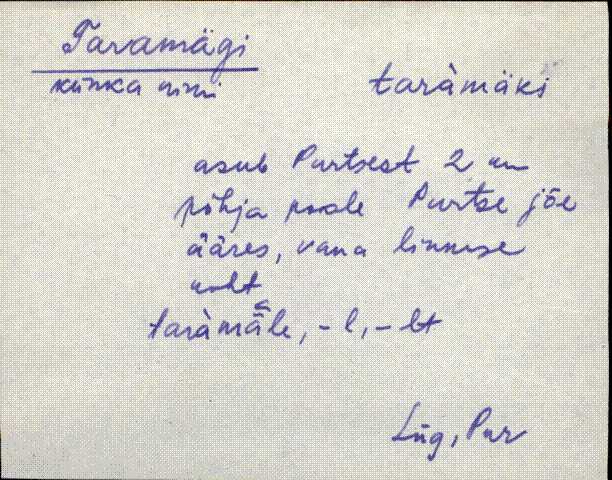 Taramägi taràmäki
künka nimi
asub Purtsest 2 km
põhja poole Purtse jõe
ääres, vana linnuse
koht
taràmäle, -l, -lt
Lüg, Pur